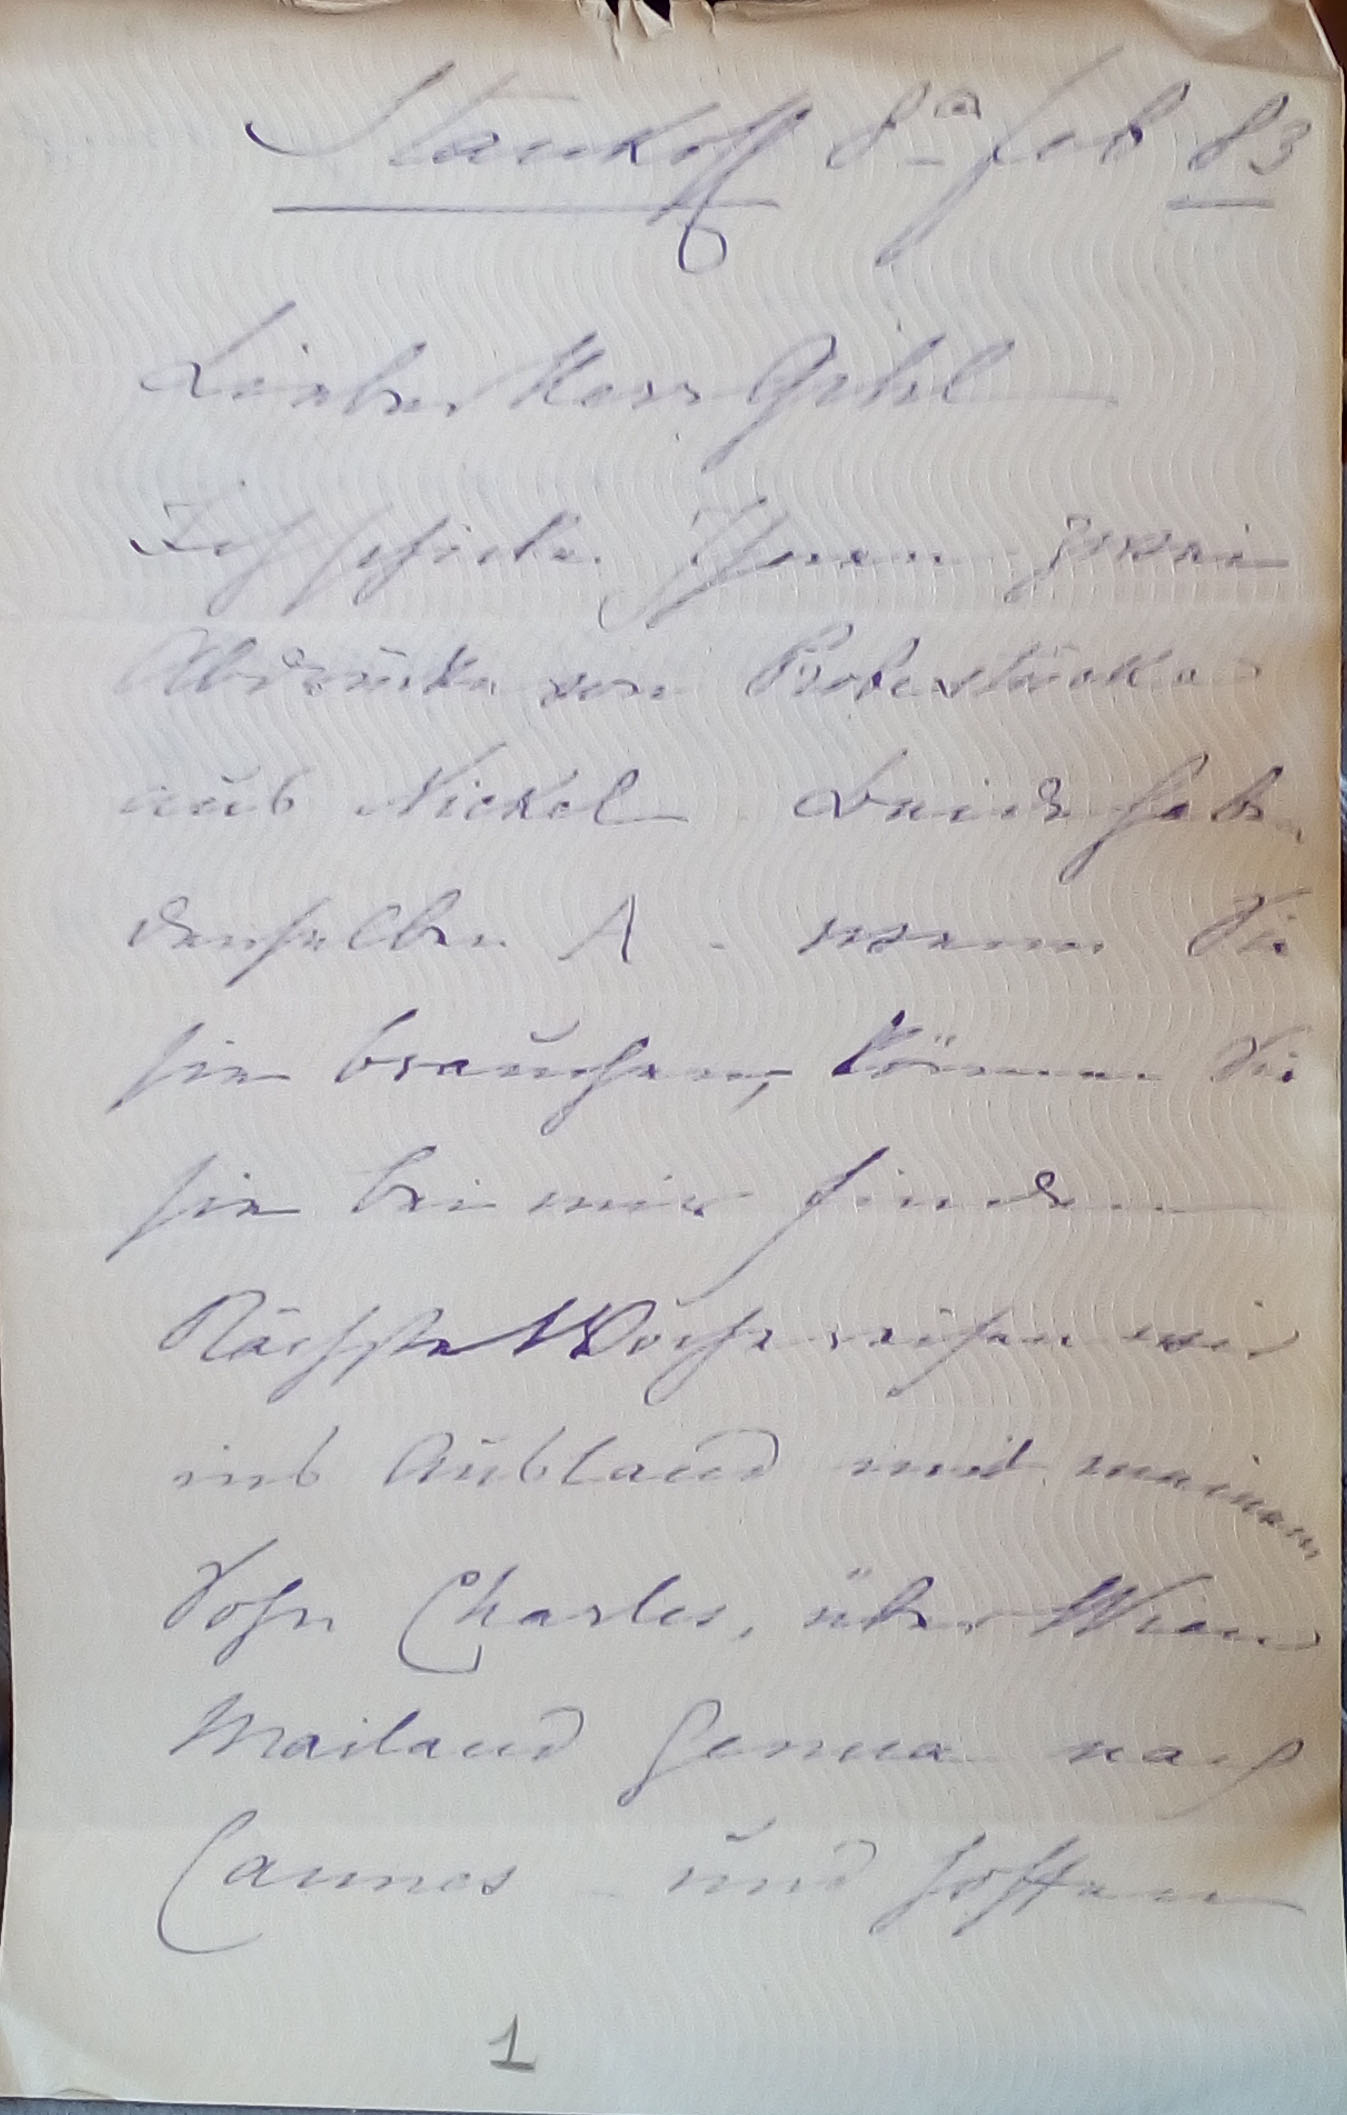 Stankoff 8a Feb 83
Lieber Herr Gebel
Ich schicke Ihnen zwei
Abdrücke von Probestücken
aus Nickel Beide haben
denselben A - wenn Sie
sie brauchen, können Sie
sie bei mir finden
Nächste Woche reisen wir
ins Ausland mit meinem
Sohn Charles, über Wien
Mailand Genua nach
Cannes - und hoffen
1